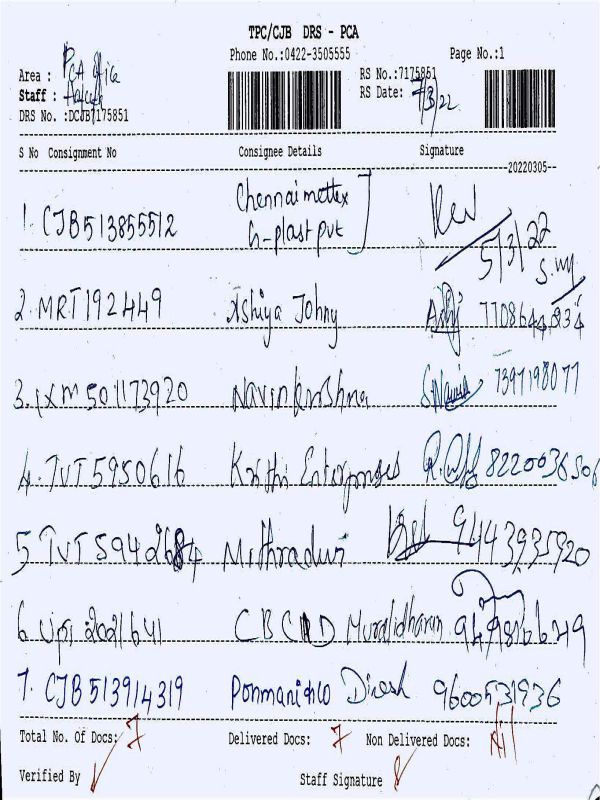 TPC/CJB DRS - PCA
Phone No.:0422-3505555 Page No.:1
Area : PCA office RS No.:7175851
Staff : RS Date: 7/3/22
DRS No. :DCJB7175851
S No Consignment No Consignee Details Signature
20220305
1. CJB513855512 Chennai mettex
G-plast pvt
5/3/22
2. MRT192449 Ashiya Johny 7708644234
3. IXM501173920 Navinkrishna S.Navin 7397198077
4. TVT5950616 Krithi Enterprises 8220036506
5 TVT5942684 Mithraduvi 9443935920
6. 2021641 CBCID Muralidharan
7. CJB513914319 Ponmani &co Dinesh 9600531936
Total No. Of Docs: 7 Delivered Docs: 7 Non Delivered Docs: Nil
Verified By Staff Signature